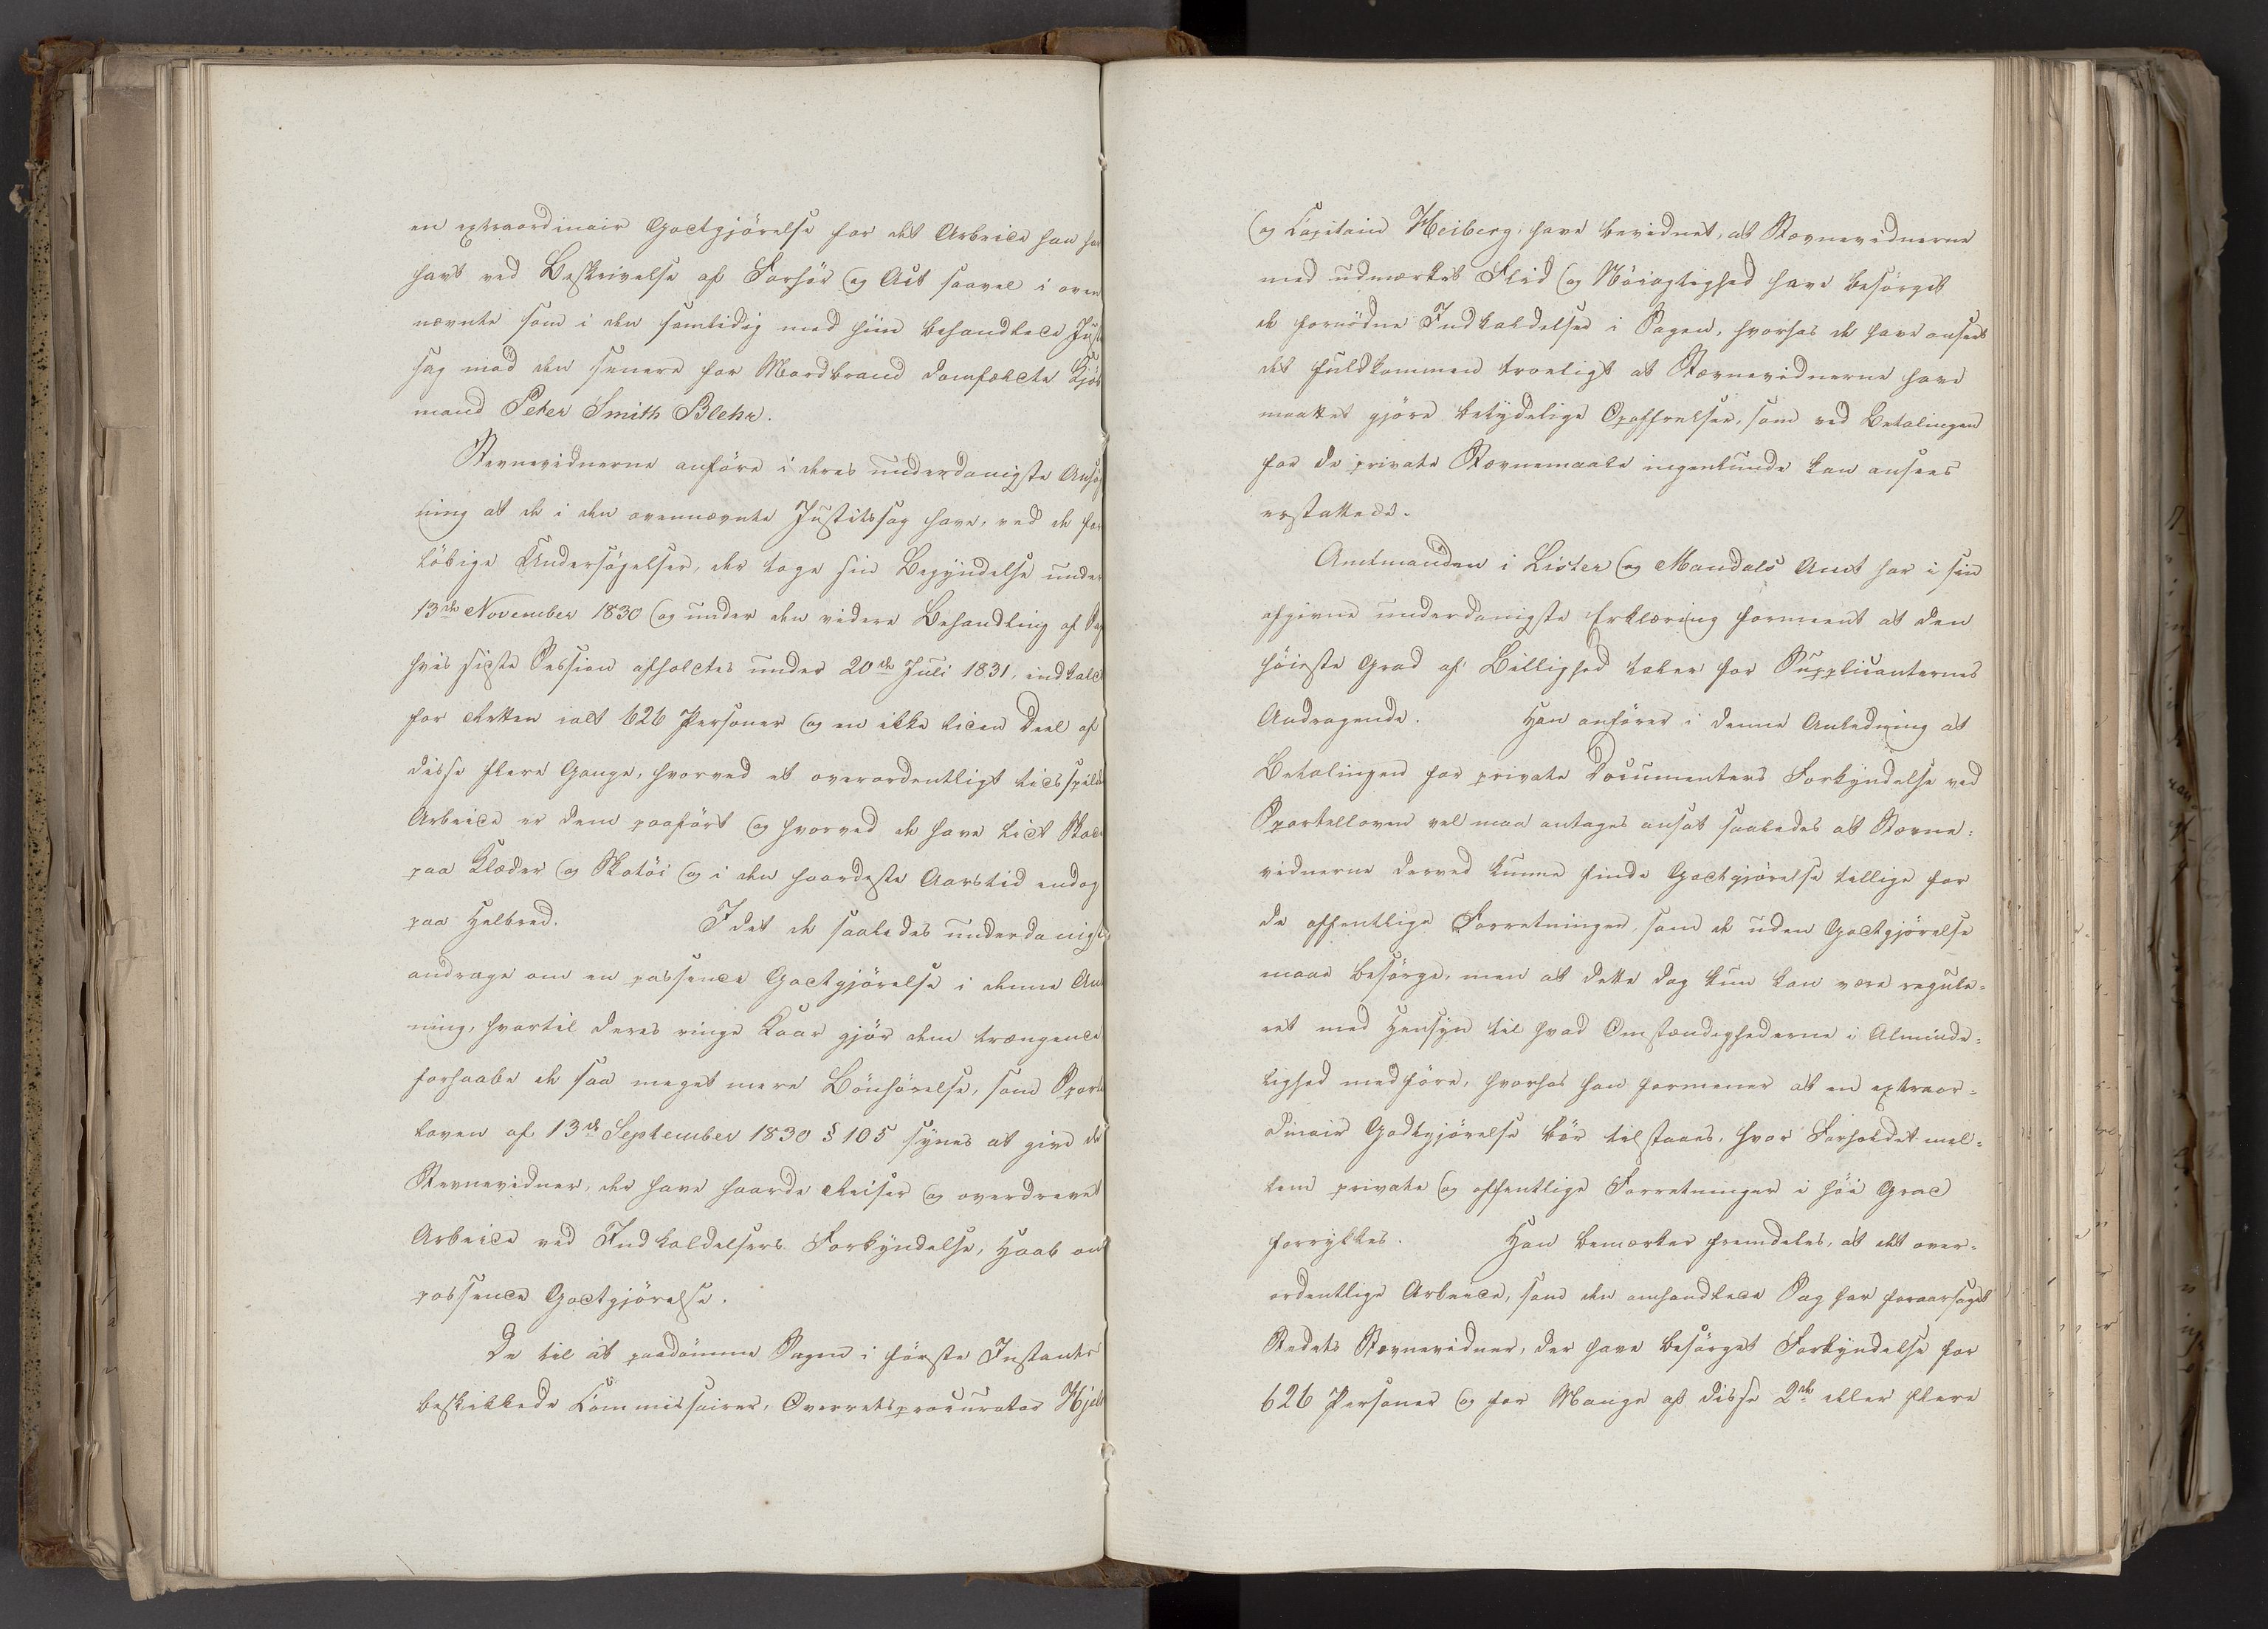 en extraordinair Godtgjörelse for det Arbeide han har
havt ved Beskrivelse af Forhör og Act saavel i oven
nævnte som i den samtidig med hiin behandlede Just
sag mod den senere for Mordbrand domfældte Kjöb
mand Peter Smith Blehr.
Stevnevidnerne anföre i deres underdanigste Ansög
ning at de i den ovennævnte Justitssag have, ved de for
löbige Undersögelser, der toge sin Begyndelse under
13de November 1830 og under den videre Behandling af Sag
hvis sidste Session afholdtes under 20de Juli 1831, indkaldt
for Retten ialt 626 Personer og en ikke liden Deel af
disse flere Gange, hvorved et overordentligt tidsspild
Arbeide er dem paafört og hvorved de have lidt Skade
paa Klæder og Skotöi og i den haardeste Aarstid endog
paa Helbred. Idet de saaledes underdanigst
andrage om en passende Godtgjörelse i denne An
ning, hvortil deres ringe Kaar gjör dem trængende
forhaabe de saa meget mere Bönhörelse, som Sport
loven af 13de September 1830 § 105 synes at give de
Stevnevidner, der have haarde Reiser og overdrevet
Arbeide ved Indkaldelsers Forkyndelse, Haab om
passende Godtgjörelse.
De til at paadömme Sagen i förste Instants
beskikkede Commissairer, Overretsprocurator Hjel
og Capitain Heiberg, have bevidnet, at Stævnevidnerne
med udmærket Flid og Nöiagtighed have besörget
de fornödne Indkaldelser i Sagen, hvorhos de have anseet
det fuldkommen troeligt at Stævnevidnerne have
maattet gjöre betydelige Opoffrelser, som ved Betalingen
for de private Stævnemaale ingenlunde kan ansees
erstattede.
Amtmanden i Lister og Mandals Amt har i sin
afgivne underdanigste Erklæring formeent at den
höieste Grad af Billighed taler for Supplicanternes
Andragende. Han anförer i denne Anledning at
Betalingen for private Documenters Forkyndelse ved
Sportelloven vel maa antages ansat saaledes at Stævne:
vidnerne derved kunne finde Godtgjörelse tillige for
de offentlige Forretninger, som de uden Godtgjörelse
maae besörge, men at dette dog kun kan være regule=
ret med Hensyn til hvad Omstændighederne i Alminde=
lighed medföre, hvorhos han formener at en extraor=
dinair Godtgjörelse bör tilstaaes, hvor Forholdet mel=
lem private og offentlige Forretninger i höi Grad
forrykkes. Han bemærker fremdeles, at det over=
ordentlige Arbeide, som den omhandlede Sag har foraarsaget
Stedets Stævnevidner, der have besörget Forkyndelse for
626 Personer og for Mange af disse 2de eller flere